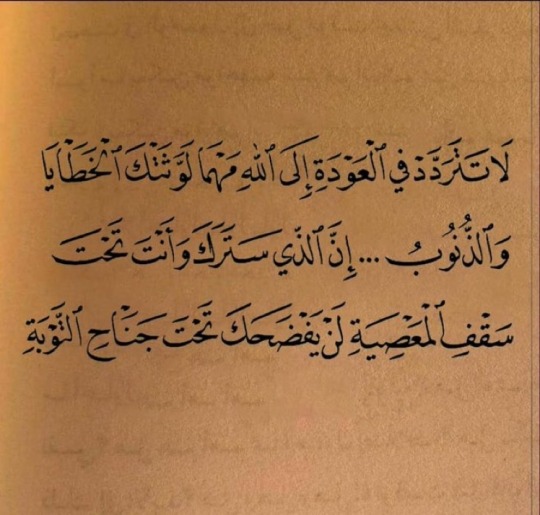 لَا تَتَرَدَّدْ فِي ٱلْعَوْدَةِ إِلَىٰ ٱللّٰهِ مَهْمَا لَوَّثَتْكَ ٱلْخَطَايَا
وَٱلذُّنُوبُ ... إِنَّ ٱلَّذِي سَتَرَكَ وَأَنْتَ تَحْتَ
سَقْفِ ٱلْمَعْصِيَةِ لَنْ يَفْضَحَكَ تَحْتَ جَنَاحِ ٱلتَّوْبَةِ